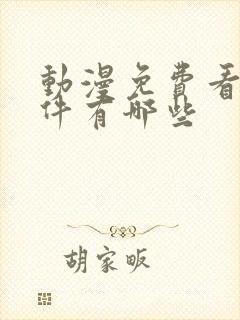 動漫免費看
件有哪些
胡家畈